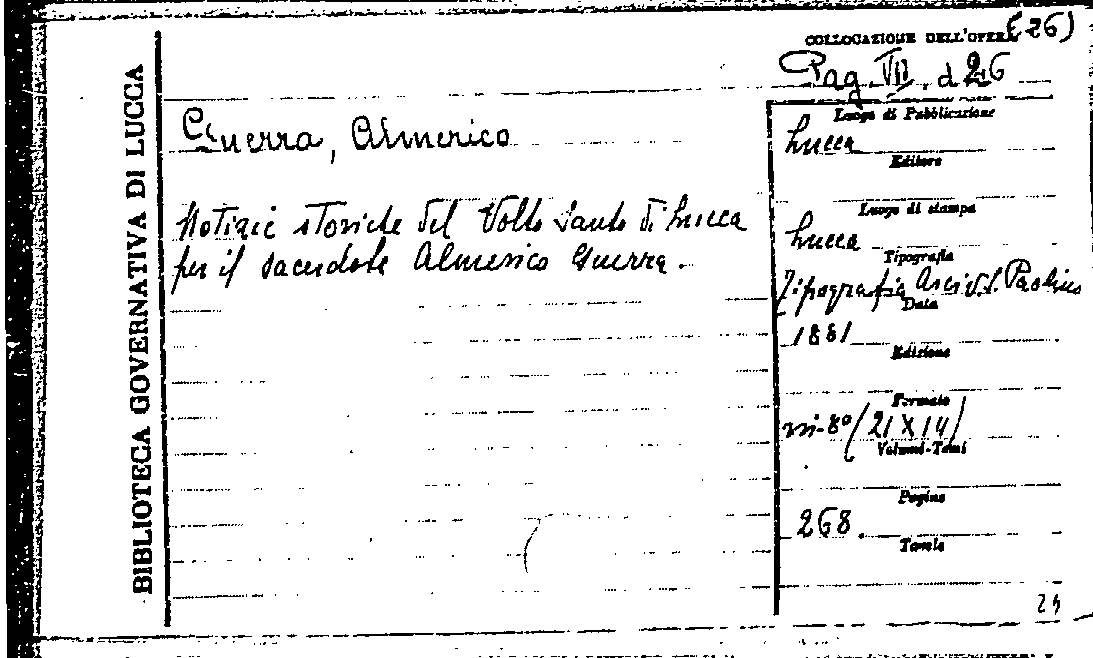 BIBLIOTECA GOVERNATIVA DI LUCCA
Guerra, Almerico
Notizie storiche del Volto Santo di Lucca
per il sacerdote Almerico Guerra.
COLLOCAZIONE DELL'OPERA (26)
Pag. VII. d 26
Luogo di Pubblicazione
Lucca
Editore
Luogo di stampa
Lucca
Tipografia
Tipografia Arciv. S. Paolino
Data
1881
Edizione
Formato
in-8° (21 X 14)
Volumi-Tomi
Pagine
268.
Tavole